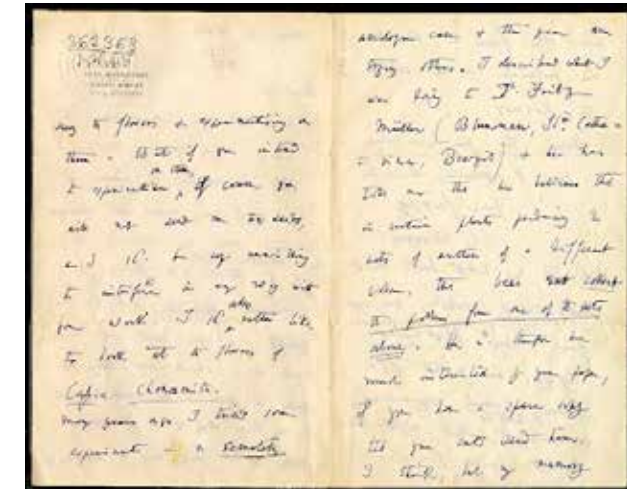 way to flowers & experimentising on
them. But if you intend
on them
to experimentise, of course you
will not send me any seeds,
as I shd. be very unwilling
to interfere in any way with
your work. I shd. also rather like
to look at the flowers of
Cassia chamaecrista.
Many years ago I tried some
experiments in a remotely
analogous case & this year am
trying others. I described what I
was doing to Dr Fritz
Müller (Blumenau, St. Catha-
rina, Brazil) & he has
told me that he believes that
in certain plants producing 2
sets of anthers of a different
colour, the bees collect
the pollen from one of the sets
alone. He wd. therefore be
much interested by your paper,
if you have a spare copy
that you could send him.
I think, but my memory